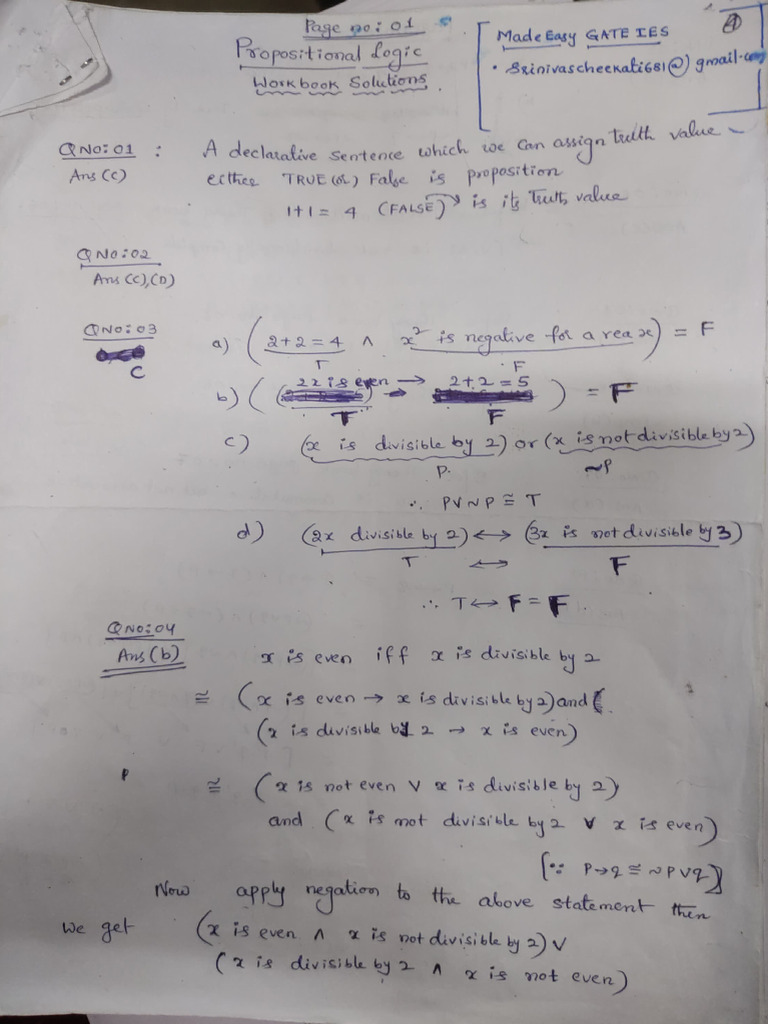 Page no: 01
Propositional Logic
Workbook Solutions
Made Easy GATE IES
• Srinivascheekati681@gmail.com
QNO:01 : A declarative sentence which we can assign truth value
Ans (c) either TRUE (or) False is proposition
1+1 = 4 (FALSE) is its Truth value
QNO:02
Ans (C),(D)
QNO:03 a) (2+2=4 ∧ x² is negative for a rea x) = F
T F
C
b) (2x is even → 2+2=5) = F
T F
c) (x is divisible by 2) or (x is not divisible by 2)
P. ~P
∴ PV~P ≅ T
d) (2x divisible by 2) ↔ (3x is not divisible by 3)
T ↔ F
∴ T↔F = F.
QNO:04
Ans (b) x is even iff x is divisible by 2
≅ (x is even → x is divisible by 2) and
(x is divisible by 2 → x is even)
P ≅ (x is not even V x is divisible by 2)
and (x is not divisible by 2 V x is even)
[∵ P→q ≅ ~PVq]
Now apply negation to the above statement then
we get (x is even ∧ x is not divisible by 2) V
(x is divisible by 2 ∧ x is not even)